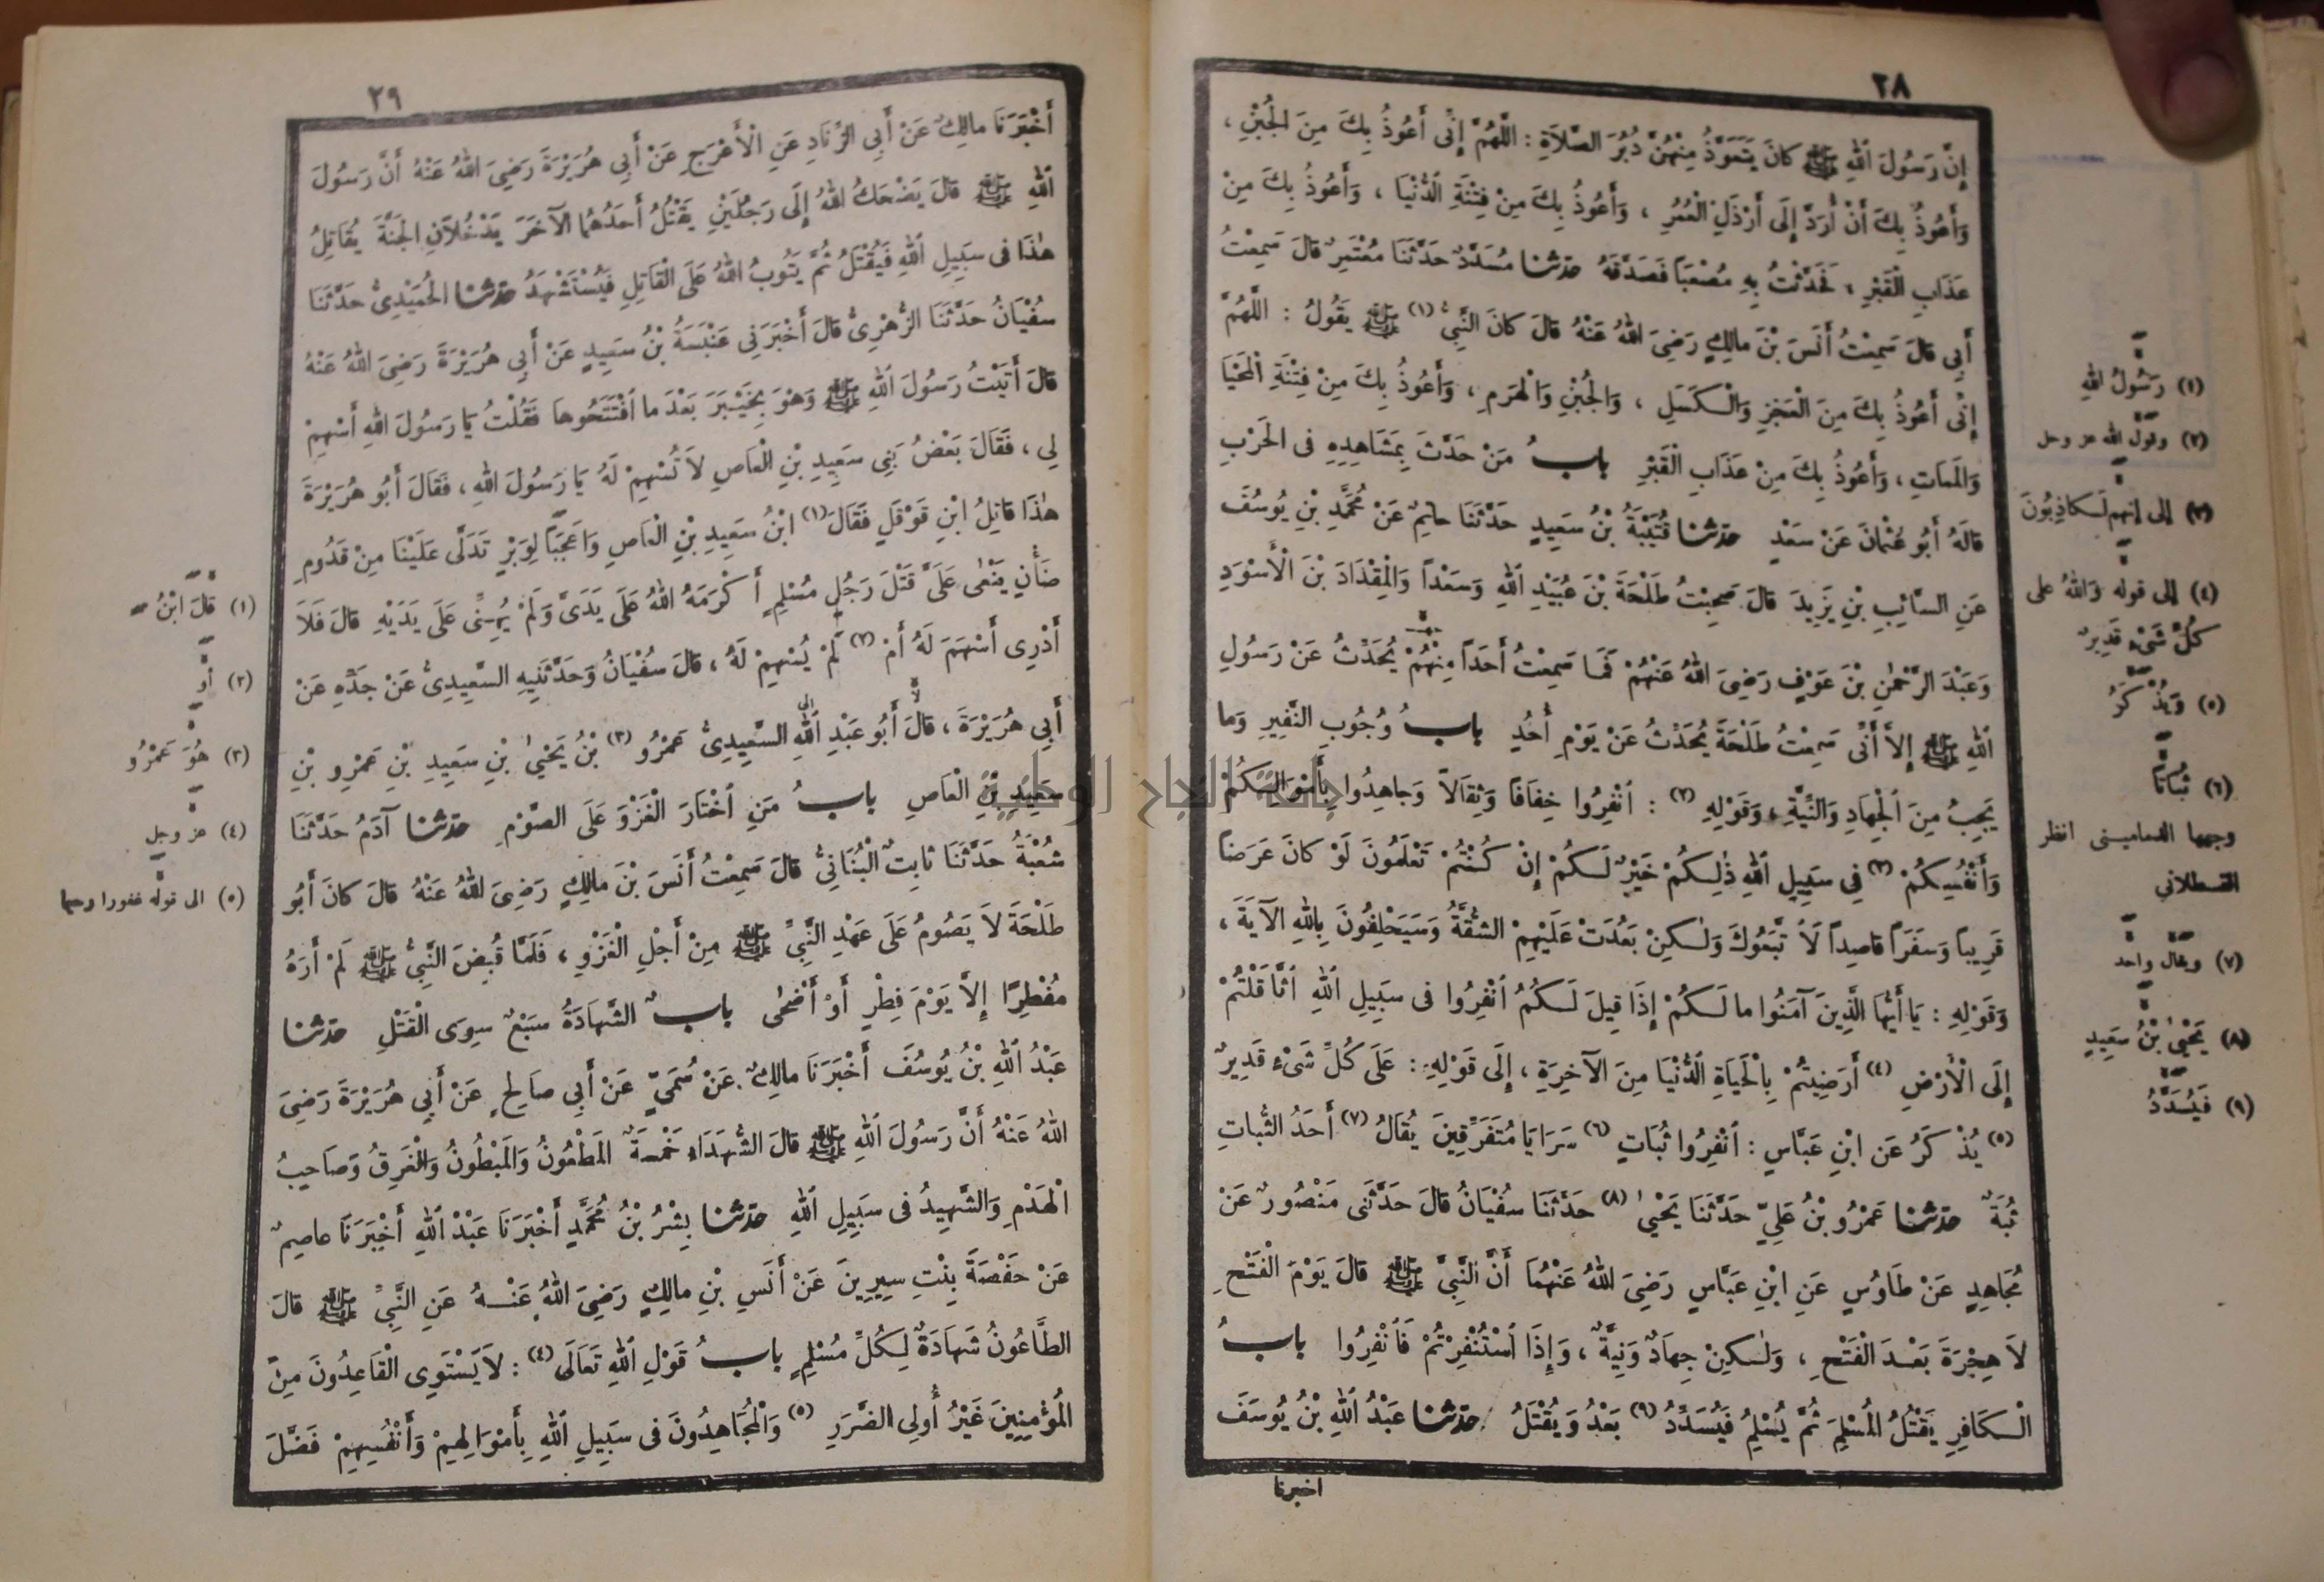 ٢٨
إِنَّ رَسُولَ اللهِ ﷺ كانَ يَتَعَوَّذُ مِنْهُنَّ دُبُرَ الصَّلاَةِ : اللَّهُمَّ إِنِّى أَعُوذُ بِكَ مِنَ الجُبْنِ ،
وَأَعُوذُ بِكَ أَنْ أُرَدَّ إِلَى أَرْذَلِ الْعُمُرِ ، وَأَعُوذُ بِكَ مِنْ فِتْنَةِ الدُّنْيَا ، وَأَعُوذُ بِكَ مِنْ
عَذَابِ الْقَبْرِ ، فَحَدَّثْتُ بِهِ مُصْعَبًا فَصَدَّقَهُ حدثنا مُسَدَّدٌ حَدَّثَنَا مُعْتَمِرٌ قالَ سَمِعْتُ
أَبِى قالَ سَمِعْتُ أَنَسَ بْنَ مالِكٍ رَضِىَ اللهُ عَنْهُ قالَ كانَ النَّبِىُّ (١) ﷺ يَقُولُ : اللَّهُمَّ
إِنِّى أَعُوذُ بِكَ مِنَ الْعَجْزِ وَالْكَسَلِ ، وَالجُبْنِ وَالْهَرَمِ ، وَأَعُوذُ بِكَ مِنْ فِتْنَةِ الْمَحْيَا
وَالمَمَاتِ ، وَأَعُوذُ بِكَ مِنْ عَذَابِ الْقَبْرِ بابُ مَنْ حَدَّثَ بِمَشَاهِدِهِ فى الحَرْبِ
قالَهُ أَبُو عُثْمانَ عَنْ سَعْدٍ حدثنا قُتَيْبَةُ بْنُ سَعِيدٍ حَدَّثَنَا حاتِمٌ عَنْ مُحَمَّدِ بْنِ يُوسُفَ
عَنِ السَّائِبِ بْنِ يَزِيدَ قالَ صَحِبْتُ طَلْحَةَ بْنَ عُبَيْدِ اللهِ وَسَعْدًا وَالْمِقْدَادَ بْنَ الْأَسْوَدِ
وَعَبْدَ الرَّحْمٰنِ بْنَ عَوْفٍ رَضِىَ اللهُ عَنْهُمْ فَمَا سَمِعْتُ أَحَدًا مِنْهُمْ يُحَدِّثُ عَنْ رَسُولِ
اللهِ ﷺ إِلاَّ أَنِّى سَمِعْتُ طَلْحَةَ يُحَدِّثُ عَنْ يَوْمِ أُحُدٍ بابُ وُجُوبِ النَّفِيرِ وَما
يَجِبُ مِنَ الْجِهَادِ وَالنِّيَّةِ ، وَقَوْلِهِ (٢) : انْفِرُوا خِفَافًا وَثِقَالاً وَجاهِدُوا بِأَمْوَالِكُمْ
وَأَنْفُسِكُمْ (٣) فِى سَبِيلِ اللهِ ذٰلِكُمْ خَيْرٌ لَكُمْ إِنْ كُنْتُمْ تَعْلَمُونَ لَوْ كانَ عَرَضًا
قَرِيبًا وَسَفَرًا قاصِدًا لاَ تَّبَعُوكَ وَلٰكِنْ بَعُدَتْ عَلَيْهِمُ الشُّقَّةُ وَسَيَحْلِفُونَ بِاللهِ الآيَةَ ،
وَقَوْلِهِ : يَا أَيُّهَا الَّذِينَ آمَنُوا ما لَكُمْ إِذَا قِيلَ لَكُمُ انْفِرُوا فى سَبِيلِ اللهِ اثَّاقَلْتُمْ
إِلَى الْأَرْضِ (٤) أَرَضِيتُمْ بِالْحَيَاةِ الدُّنْيَا مِنَ الآخِرَةِ ، إِلَى قَوْلِهِ : عَلَى كُلِّ شَىْءٍ قَدِيرٌ
(٥) يُذْكَرُ عَنِ ابْنِ عَبَّاسٍ : انْفِرُوا ثُبَاتٍ (٦) سَرَايَا مُتَفَرِّقِينَ يُقَالُ (٧) أَحَدُ الثُّبَاتِ
ثُبَةٌ حدثنا عَمْرُو بْنُ عَلِيٍّ حَدَّثَنَا يَحْيٰى (٨) حَدَّثَنَا سُفْيَانُ قالَ حَدَّثَنِى مَنْصُورٌ عَنْ
مُجَاهِدٍ عَنْ طَاوُسٍ عَنِ ابْنِ عَبَّاسٍ رَضِىَ اللهُ عَنْهُمَا أَنَّ النَّبِىَّ ﷺ قالَ يَوْمَ الْفَتْحِ
لاَ هِجْرَةَ بَعْدَ الْفَتْحِ ، وَلٰكِنْ جِهَادٌ وَنِيَّةٌ ، وَإِذَا اسْتُنْفِرْتُمْ فَانْفِرُوا بابُ
الْكَافِرِ يَقْتُلُ المُسْلِمَ ثُمَّ يُسْلِمُ فَيُسَدِّدُ (٩) بَعْدُ وَيُقْتَلُ حدثنا عَبْدُ اللهِ بْنُ يُوسُفَ
اخبرنا
(١) رَسُولُ اللهِ
(٢) وقول الله عز وجل
(٣) إلى إنهم لَكاذِبُونَ
(٤) إلى قوله وَاللهُ على
كُلِّ شَىْءٍ قَدِيرٌ
(٥) وَيُذْكَرُ
(٦) ثُبَاتًا
وجهها الدمامينى انظر
القسطلاني
(٧) ويقال واحد
(٨) يَحْيٰى بْنُ سَعِيدٍ
(٩) فَيُسَدَّدُ
٢٩
أَخْبَرَنَا مالِكٌ عَنْ أَبِى الزِّنَادِ عَنِ الْأَعْرَجِ عَنْ أَبِى هُرَيْرَةَ رَضِىَ اللهُ عَنْهُ أَنَّ رَسُولَ
اللهِ ﷺ قالَ يَضْحَكُ اللهُ إِلَى رَجُلَيْنِ يَقْتُلُ أَحَدُهُمَا الآخَرَ يَدْخُلاَنِ الجَنَّةَ يُقَاتِلُ
هٰذَا فى سَبِيلِ اللهِ فَيُقْتَلُ ثُمَّ يَتُوبُ اللهُ عَلَى الْقَاتِلِ فَيُسْتَشْهَدُ حدثنا الحُمَيْدِىُّ حَدَّثَنَا
سُفْيَانُ حَدَّثَنَا الزُّهْرِىُّ قالَ أَخْبَرَنِى عَنْبَسَةُ بْنُ سَعِيدٍ عَنْ أَبِى هُرَيْرَةَ رَضِىَ اللهُ عَنْهُ
قالَ أَتَيْتُ رَسُولَ اللهِ ﷺ وَهْوَ بِخَيْبَرَ بَعْدَ ما افْتَتَحُوها فَقُلْتُ يَا رَسُولَ اللهِ أَسْهِمْ
لِى ، فَقَالَ بَعْضُ بَنِى سَعِيدِ بْنِ الْعَاصِ لاَ تُسْهِمْ لَهُ يَا رَسُولَ اللهِ ، فَقَالَ أَبُو هُرَيْرَةَ
هٰذَا قاتِلُ ابْنِ قَوْقَلٍ فَقَالَ (١) ابْنُ سَعِيدِ بْنِ الْعَاصِ وَاعَجَبًا لِوَبْرٍ تَدَلَّى عَلَيْنَا مِنْ قَدُومِ
ضَأْنٍ يَنْعٰى عَلَىَّ قَتْلَ رَجُلٍ مُسْلِمٍ أَكْرَمَهُ اللهُ عَلَى يَدَىَّ وَلَمْ يُهِنِّى عَلَى يَدَيْهِ قالَ فَلاَ
أَدْرِى أَسْهَمَ لَهُ أَمْ (٢) لَمْ يُسْهِمْ لَهُ ، قالَ سُفْيَانُ وَحَدَّثَنِيهِ السَّعِيدِىُّ عَنْ جَدِّهِ عَنْ
أَبِى هُرَيْرَةَ ، قالَ أَبُو عَبْدِ اللهِ السَّعِيدِىُّ عَمْرُو (٣) بْنُ يَحْيٰى بْنِ سَعِيدِ بْنِ عَمْرِو بْنِ
سَعِيدِ بْنِ الْعَاصِ بابُ مَنِ اخْتَارَ الْغَزْوَ عَلَى الصَّوْمِ حدثنا آدَمُ حَدَّثَنَا
شُعْبَةُ حَدَّثَنَا ثابِتٌ الْبُنَانِىُّ قالَ سَمِعْتُ أَنَسَ بْنَ مالِكٍ رَضِىَ اللهُ عَنْهُ قالَ كانَ أَبُو
طَلْحَةَ لاَ يَصُومُ عَلَى عَهْدِ النَّبِىِّ ﷺ مِنْ أَجْلِ الْغَزْوِ ، فَلَمَّا قُبِضَ النَّبِىُّ ﷺ لَمْ أَرَهُ
مُفْطِرًا إِلاَّ يَوْمَ فِطْرٍ أَوْ أَضْحٰى بابٌ الشَّهَادَةُ سَبْعٌ سِوَى الْقَتْلِ حدثنا
عَبْدُ اللهِ بْنُ يُوسُفَ أَخْبَرَنَا مالِكٌ عَنْ سُمَىٍّ عَنْ أَبِى صَالِحٍ عَنْ أَبِى هُرَيْرَةَ رَضِىَ
اللهُ عَنْهُ أَنَّ رَسُولَ اللهِ ﷺ قالَ الشُّهَدَاءُ خَمْسَةٌ المَطْعُونُ وَالمَبْطُونُ وَالْغَرِقُ وَصَاحِبُ
الْهَدْمِ وَالشَّهِيدُ فى سَبِيلِ اللهِ حدثنا بِشْرُ بْنُ مُحَمَّدٍ أَخْبَرَنَا عَبْدُ اللهِ أَخْبَرَنَا عاصِمٌ
عَنْ حَفْصَةَ بِنْتِ سِيرِينَ عَنْ أَنَسِ بْنِ مالِكٍ رَضِىَ اللهُ عَنْهُ عَنِ النَّبِىِّ ﷺ قالَ
الطَّاعُونُ شَهَادَةٌ لِكُلِّ مُسْلِمٍ بابُ قَوْلِ اللهِ تَعَالَى (٤) : لاَ يَسْتَوِى الْقَاعِدُونَ مِنَ
المُؤْمِنِينَ غَيْرُ أُولِى الضَّرَرِ (٥) وَالْمُجَاهِدُونَ فى سَبِيلِ اللهِ بِأَمْوَالِهِمْ وَأَنْفُسِهِمْ فَضَّلَ
(١) قالَ ابْنُ
(٢) أو
(٣) هُوَ عَمْرُو
(٤) عز وجل
(٥) الى قوله غفورا رحيما
جامعة النجاح الوطنية